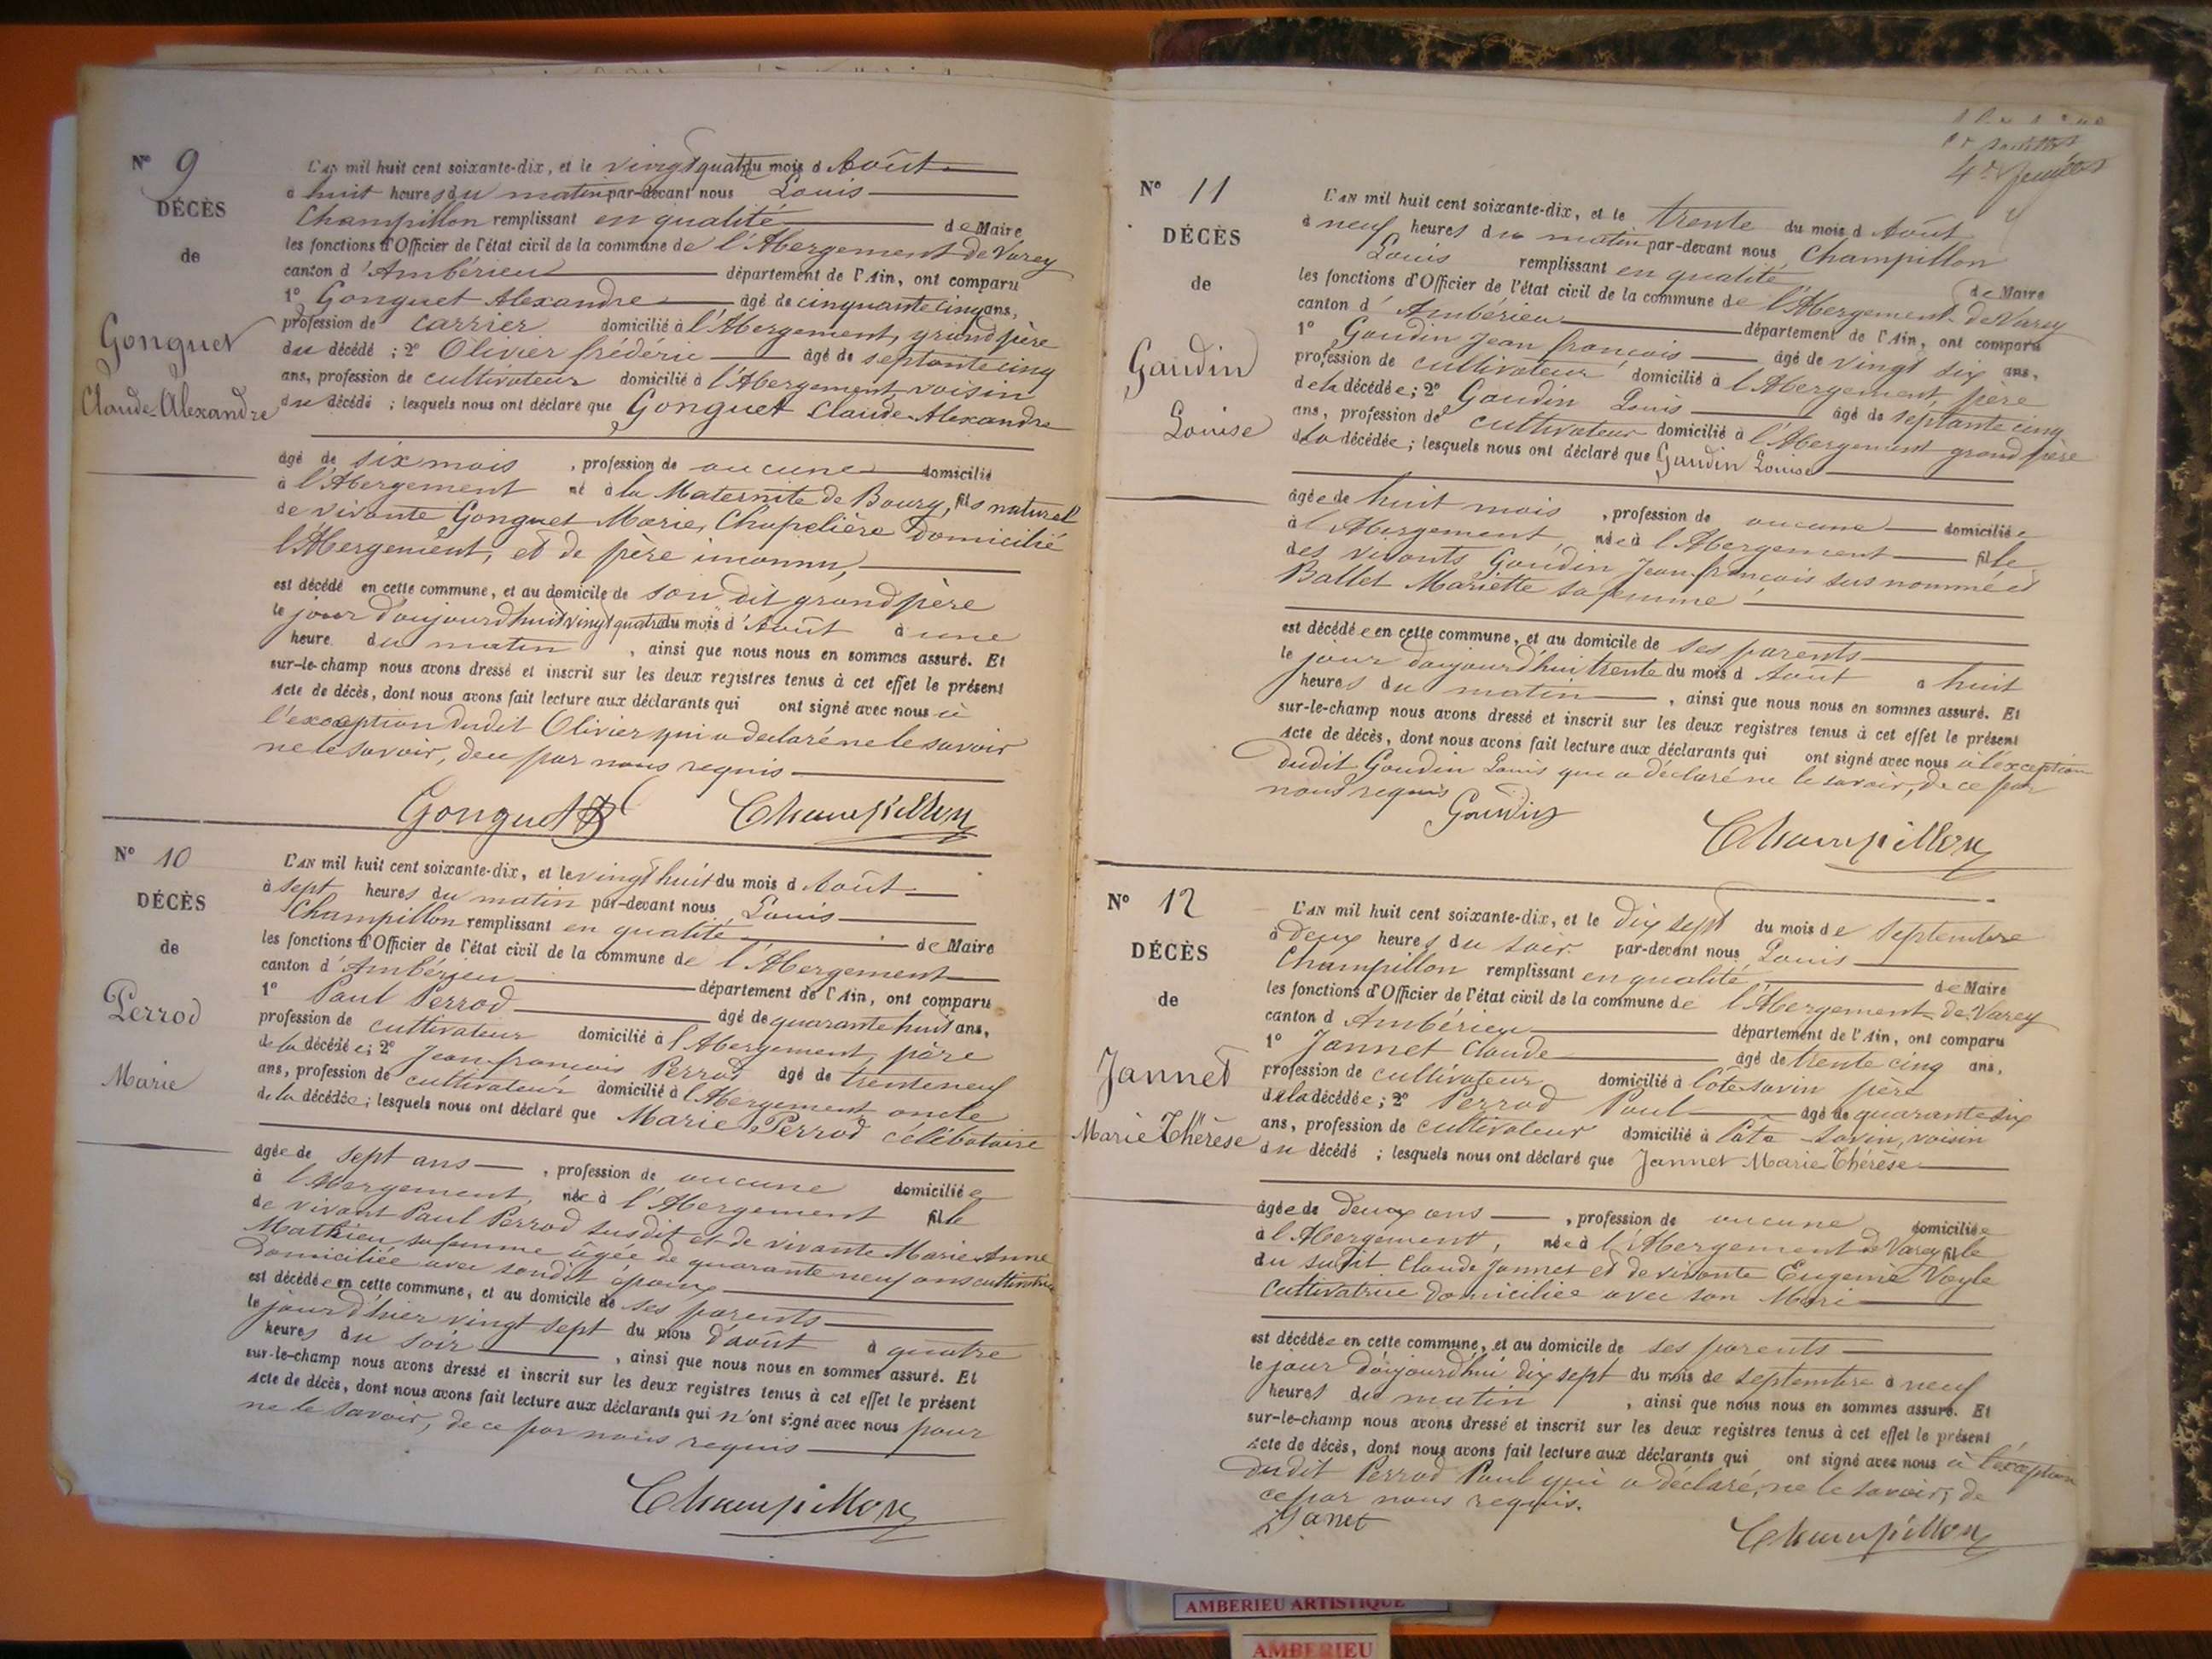 N° 9
DÉCÈS
de
Gonguet
Claude-Alexandre
L'AN mil huit cent soixante-dix, et le vingt quatre du mois d'Août
à huit heures du matin par-devant nous Louis
Champillon remplissant en qualité de Maire
les fonctions d'Officier de l'état civil de la commune de l'Abergement de Varey
canton d'Ambérieu département de l'Ain, ont comparu
1° Gonguet Alexandre âgé de cinquante cinq ans,
profession de carrier domicilié à l'Abergement, grand père
du décédé ; 2° Olivier frédéric âgé de septante cinq
ans, profession de cultivateur domicilié à l'Abergement, voisin
du décédé ; lesquels nous ont déclaré que Gonguet Claude-Alexandre
âgé de six mois, profession de aucune domicilié
à l'Abergement né à la Maternité de Bourg, fils naturel
de vivante Gonguet Marie, Chapelière Domicilié
l'Abergement, et de père inconnu,
est décédé en cette commune, et au domicile de son dit grand père
le jour d'aujourd'hui vingt quatre du mois d'Août à une
heure du matin, ainsi que nous nous en sommes assuré. Et
sur-le-champ nous avons dressé et inscrit sur les deux registres tenus à cet effet le présent
Acte de décès, dont nous avons fait lecture aux déclarants qui ont signé avec nous à
l'exception dudit Olivier qui a déclaré ne le savoir
ne le savoir, de ce par nous requis
Gonguet Champillon
N° 10
DÉCÈS
de
Perrod
Marie
L'AN mil huit cent soixante-dix, et le vingt huit du mois d'Août
à sept heures du matin par-devant nous Louis
Champillon remplissant en qualité de Maire
les fonctions d'Officier de l'état civil de la commune de l'Abergement
canton d'Ambérieu département de l'Ain, ont comparu
1° Paul Perrod âgé de quarante huit ans,
profession de cultivateur domicilié à l'Abergement, père
de la décédée; 2° Jean françois Perrod âgé de trente neuf
ans, profession de cultivateur domicilié à l'Abergement oncle
de la décédée; lesquels nous ont déclaré que Marie Perrod célibataire
âgée de sept ans, profession de aucune domiciliée
à l'Abergement, née à l'Abergement fille
de vivant Paul Perrod susdit et de vivante Marie Anne
Mathieu sa femme âgée de quarante neuf ans cultivatrice
Domiciliée avec sondit époux
est décédée en cette commune, et au domicile de ses parents
le jour d'hier vingt sept du mois d'août à quatre
heures du soir, ainsi que nous nous en sommes assuré. Et
sur-le-champ nous avons dressé et inscrit sur les deux registres tenus à cet effet le présent
Acte de décès, dont nous avons fait lecture aux déclarants qui n'ont signé avec nous pour
ne le savoir, de ce par nous requis
Champillon
4e
N° 11
DÉCÈS
de
Gaudin
Louise
L'AN mil huit cent soixante-dix, et le trente du mois d'Août
à neuf heures du matin par-devant nous Champillon
Louis remplissant en qualité de Maire
les fonctions d'Officier de l'état civil de la commune de l'Abergement-de Varey
canton d'Ambérieu département de l'Ain, ont comparu
1° Goudin Jean françois âgé de vingt six ans,
profession de cultivateur domicilié à l'Abergement, père
de la décédée; 2° Goudin Louis âgé de septante cinq
ans, profession de cultivateur domicilié à l'Abergement grand père
de la décédée; lesquels nous ont déclaré que Gaudin Louise
âgée de huit mois, profession de aucune domiciliée
à l'Abergement, née à l'Abergement fille
des vivants Goudin Jean françois sus nommé et
Ballet Mariette sa femme
est décédée en cette commune, et au domicile de ses parents
le jour d'aujourd'hui trente du mois d'Août à huit
heures du matin, ainsi que nous nous en sommes assuré. Et
sur-le-champ nous avons dressé et inscrit sur les deux registres tenus à cet effet le présent
Acte de décès, dont nous avons fait lecture aux déclarants qui ont signé avec nous à l'exception
dudit Goudin Louis qui a déclaré ne le savoir, de ce par
nous requis
Goudin
Champillon
N° 12
DÉCÈS
de
Jannet
Marie Thérèse
L'AN mil huit cent soixante-dix, et le Dix sept du mois de Septembre
à Deux heures du soir par-devant nous Louis
Champillon remplissant en qualité de Maire
les fonctions d'Officier de l'état civil de la commune de l'Abergement-de-Varey
canton d'Ambérieu département de l'Ain, ont comparu
1° Jannet Claude âgé de trente cinq ans,
profession de cultivateur domicilié à Côte-savin père
de la décédée; 2° Perrod Paul âgé de quarante six
ans, profession de cultivateur domicilié à Côte-savin, voisin
du décédé ; lesquels nous ont déclaré que Jannet Marie Thérèse
âgée de Deux ans, profession de aucune domiciliée
à l'Abergement, née à l'Abergement de Varey fille
du sudit Claude Jannet et de vivante Eugenie Vayle
Cultivatrice Domiciliée avec son Mari
est décédée en cette commune, et au domicile de ses parents
le jour d'aujourd'hui Dix sept du mois de septembre à neuf
heures du matin, ainsi que nous nous en sommes assuré. Et
sur-le-champ nous avons dressé et inscrit sur les deux registres tenus à cet effet le présent
Acte de décès, dont nous avons fait lecture aux déclarants qui ont signé avec nous à l'exception
dudit Perrod Paul qui a déclaré, ne le savoir, de
ce par nous requis.
Janet
Champillon
AMBERIEU ARTISTIQUE
AMBERIEU